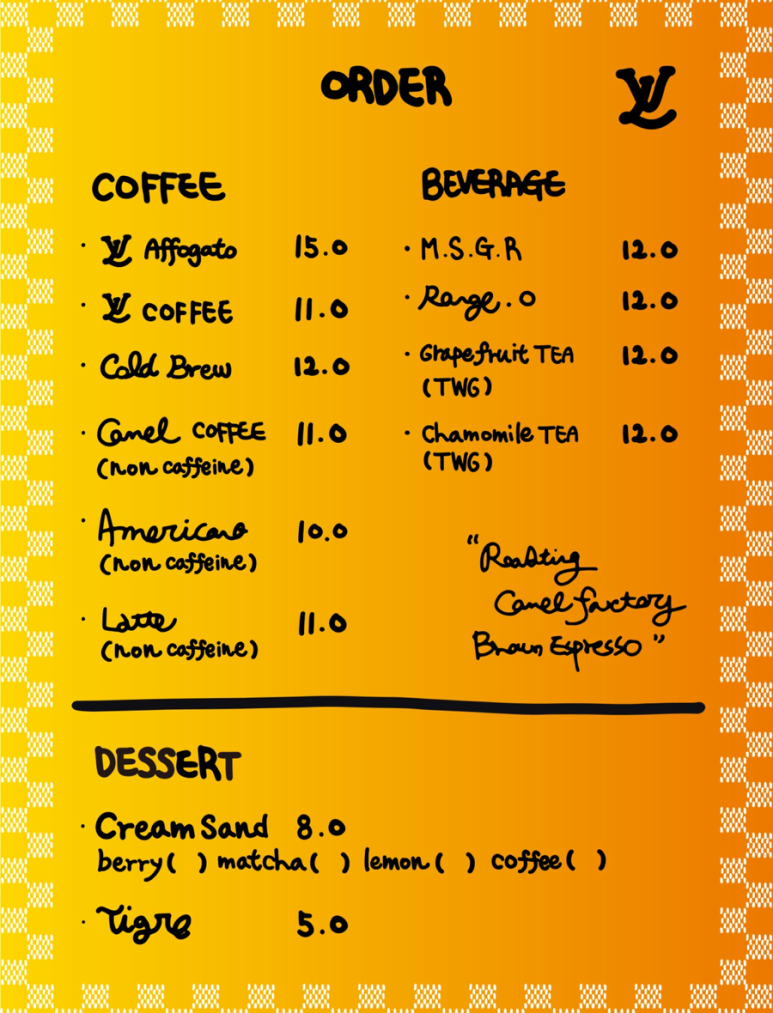 ORDER
LV
COFFEE
· LV Affogato 15.0
· LV COFFEE 11.0
· Cold Brew 12.0
· Camel COFFEE 11.0
(non caffeine)
· Americano 10.0
(non caffeine)
· Latte 11.0
(non caffeine)
BEVERAGE
· M.S.G.R 12.0
· Range.O 12.0
· Grapefruit TEA 12.0
(TWG)
· Chamomile TEA 12.0
(TWG)
"Roasting
Camel factory
Espresso"
DESSERT
· Cream Sand 8.0
berry( ) matcha( ) lemon( ) coffee( )
· Tigre 5.0